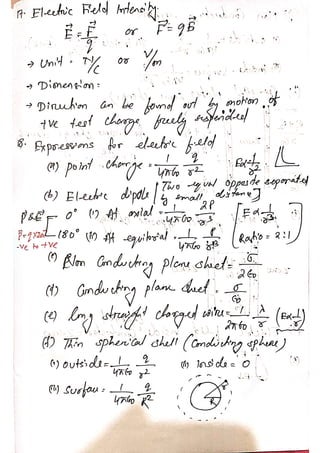 7. Electric Field Intensity:
E⃗ = F⃗/q or F⃗ = qE⃗
→ Unit = N/C or V/m
→ Dimension:
→ Direction can be found out by motion of
+ve test charge freely suspended
8. Expressions for electric field
(a) point charge = 1/4π∈0 q/r² E∝1/r²
(b) Electric dipole [Two equal opposite separated by small distance]
P&E 0° (i) At axial = 1/4π∈0 2P/r³ [E∝1/r³
P=q×2l 180° (ii) At equitorial = 1/4π∈0 P/r³ Ratio = 2:1]
-ve to +ve
(c) Non Conducting plane sheet = σ/2∈0
(d) Conducting plane sheet = σ/∈0
(e) long straight charged wire = 1/2π∈0 λ/r (E∝1/r)
(f) Thin spherical shell (Conducting sphere)
(i) outside = 1/4π∈0 q/r² (ii) Inside = 0
(iii) Surface = 1/4π∈0 q/R²